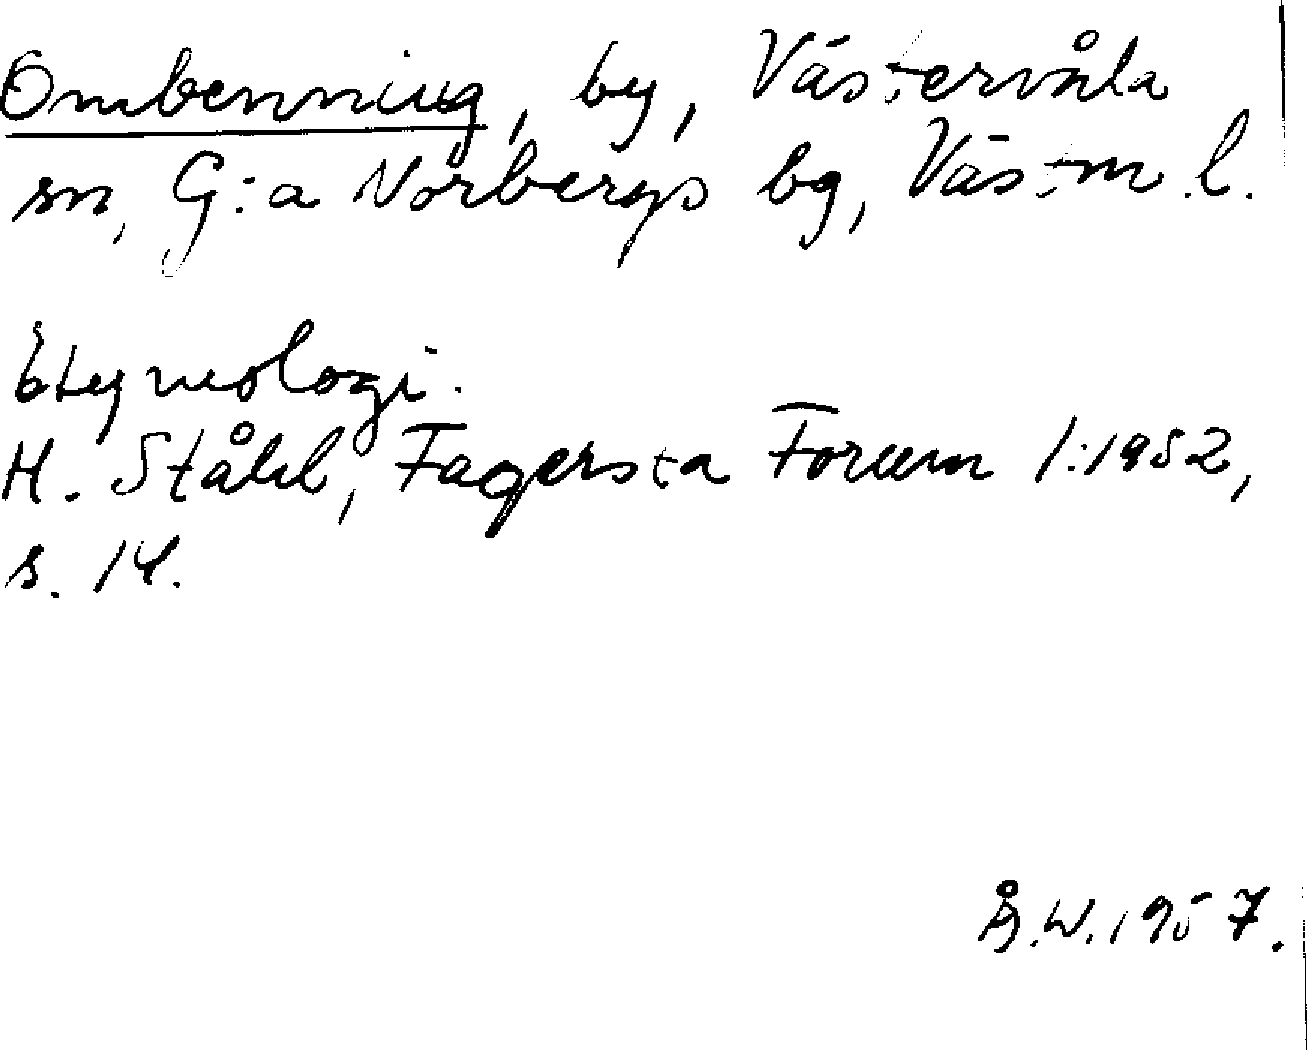 Ombenning, by, Västervåla
sn, G:a Norbergs bg, Västm.l.
Etymologi.
H. Ståhl, Fagersta Forum 1:1952,
s. 14.
Å.W. 1957.